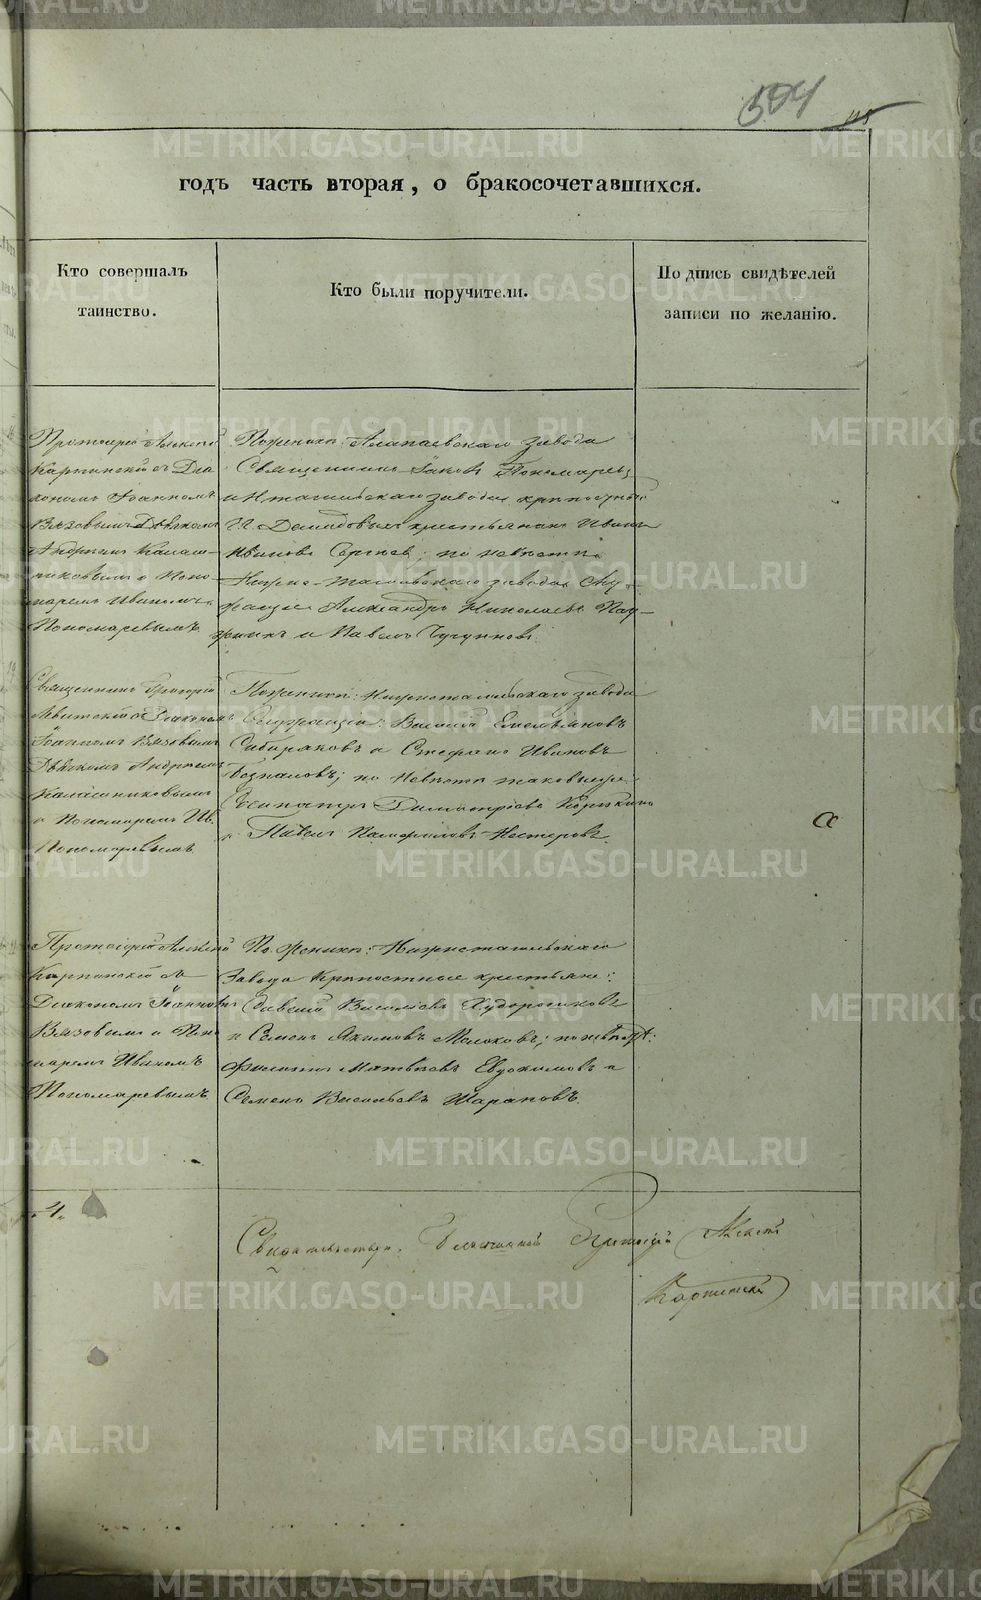 594
годъ часть вторая, о бракосочетавшихся.
Кто совершалъ
таинство.
Кто были поручители.
Подпись свидѣтелей
записи по желанію.
Протоіерей Алексѣй
Карпинскій съ Діа
кономъ Іоанномъ
Вязовымъ Дьячкомъ
Андреемъ Калаш-
никовымъ и Поно
маремъ Иваномъ
Пономаревымъ.
По женихѣ: Алапаевскаго завода
Священникъ Іаковъ Пономаревъ
и Нтагильскаго завода крѣпостный
Демидовыхъ крестьянинъ Иванъ
Ивановъ Сергѣев; по невѣстѣ:
Нижне-тагильскаго завода Слу-
жащіе Александръ Николаевъ
и Павелъ Чугунновъ.
Священникъ Григорій
Левитскій съ Діакономъ
Іоанномъ Вязовымъ
Дьячкомъ Андреемъ
Калашниковымъ
и Пономаремъ Ив.
Пономаревымъ.
По женихѣ: Нижнетагильскаго завода
Служащіе: Василій Емельяновъ
Сибиряковъ и Стефанъ Ивановъ
по невѣстѣ таковые же
Димитріевъ
и Павелъ Памфиловъ Нестеровъ.
Протоіерей Алексѣй
Карпинскій съ
Діакономъ Іоанномъ
Вязовымъ и Поно
маремъ Иваномъ
Пономаревымъ.
По женихѣ: Нижнетагильскаго
Завода Крѣпостные крестьяне:
Савелій Васильевъ Худорошковъ
и Семенъ Якимовъ Молоковъ; по невѣстѣ:
Филиппъ Матвѣевъ Евдокимовъ и
Семенъ Васильевъ Шараповъ.
4.
Свидѣтельствовалъ Благочинный Протоіерей Алексѣй
Карпинскій
METRIKI.GASO-URAL.RU